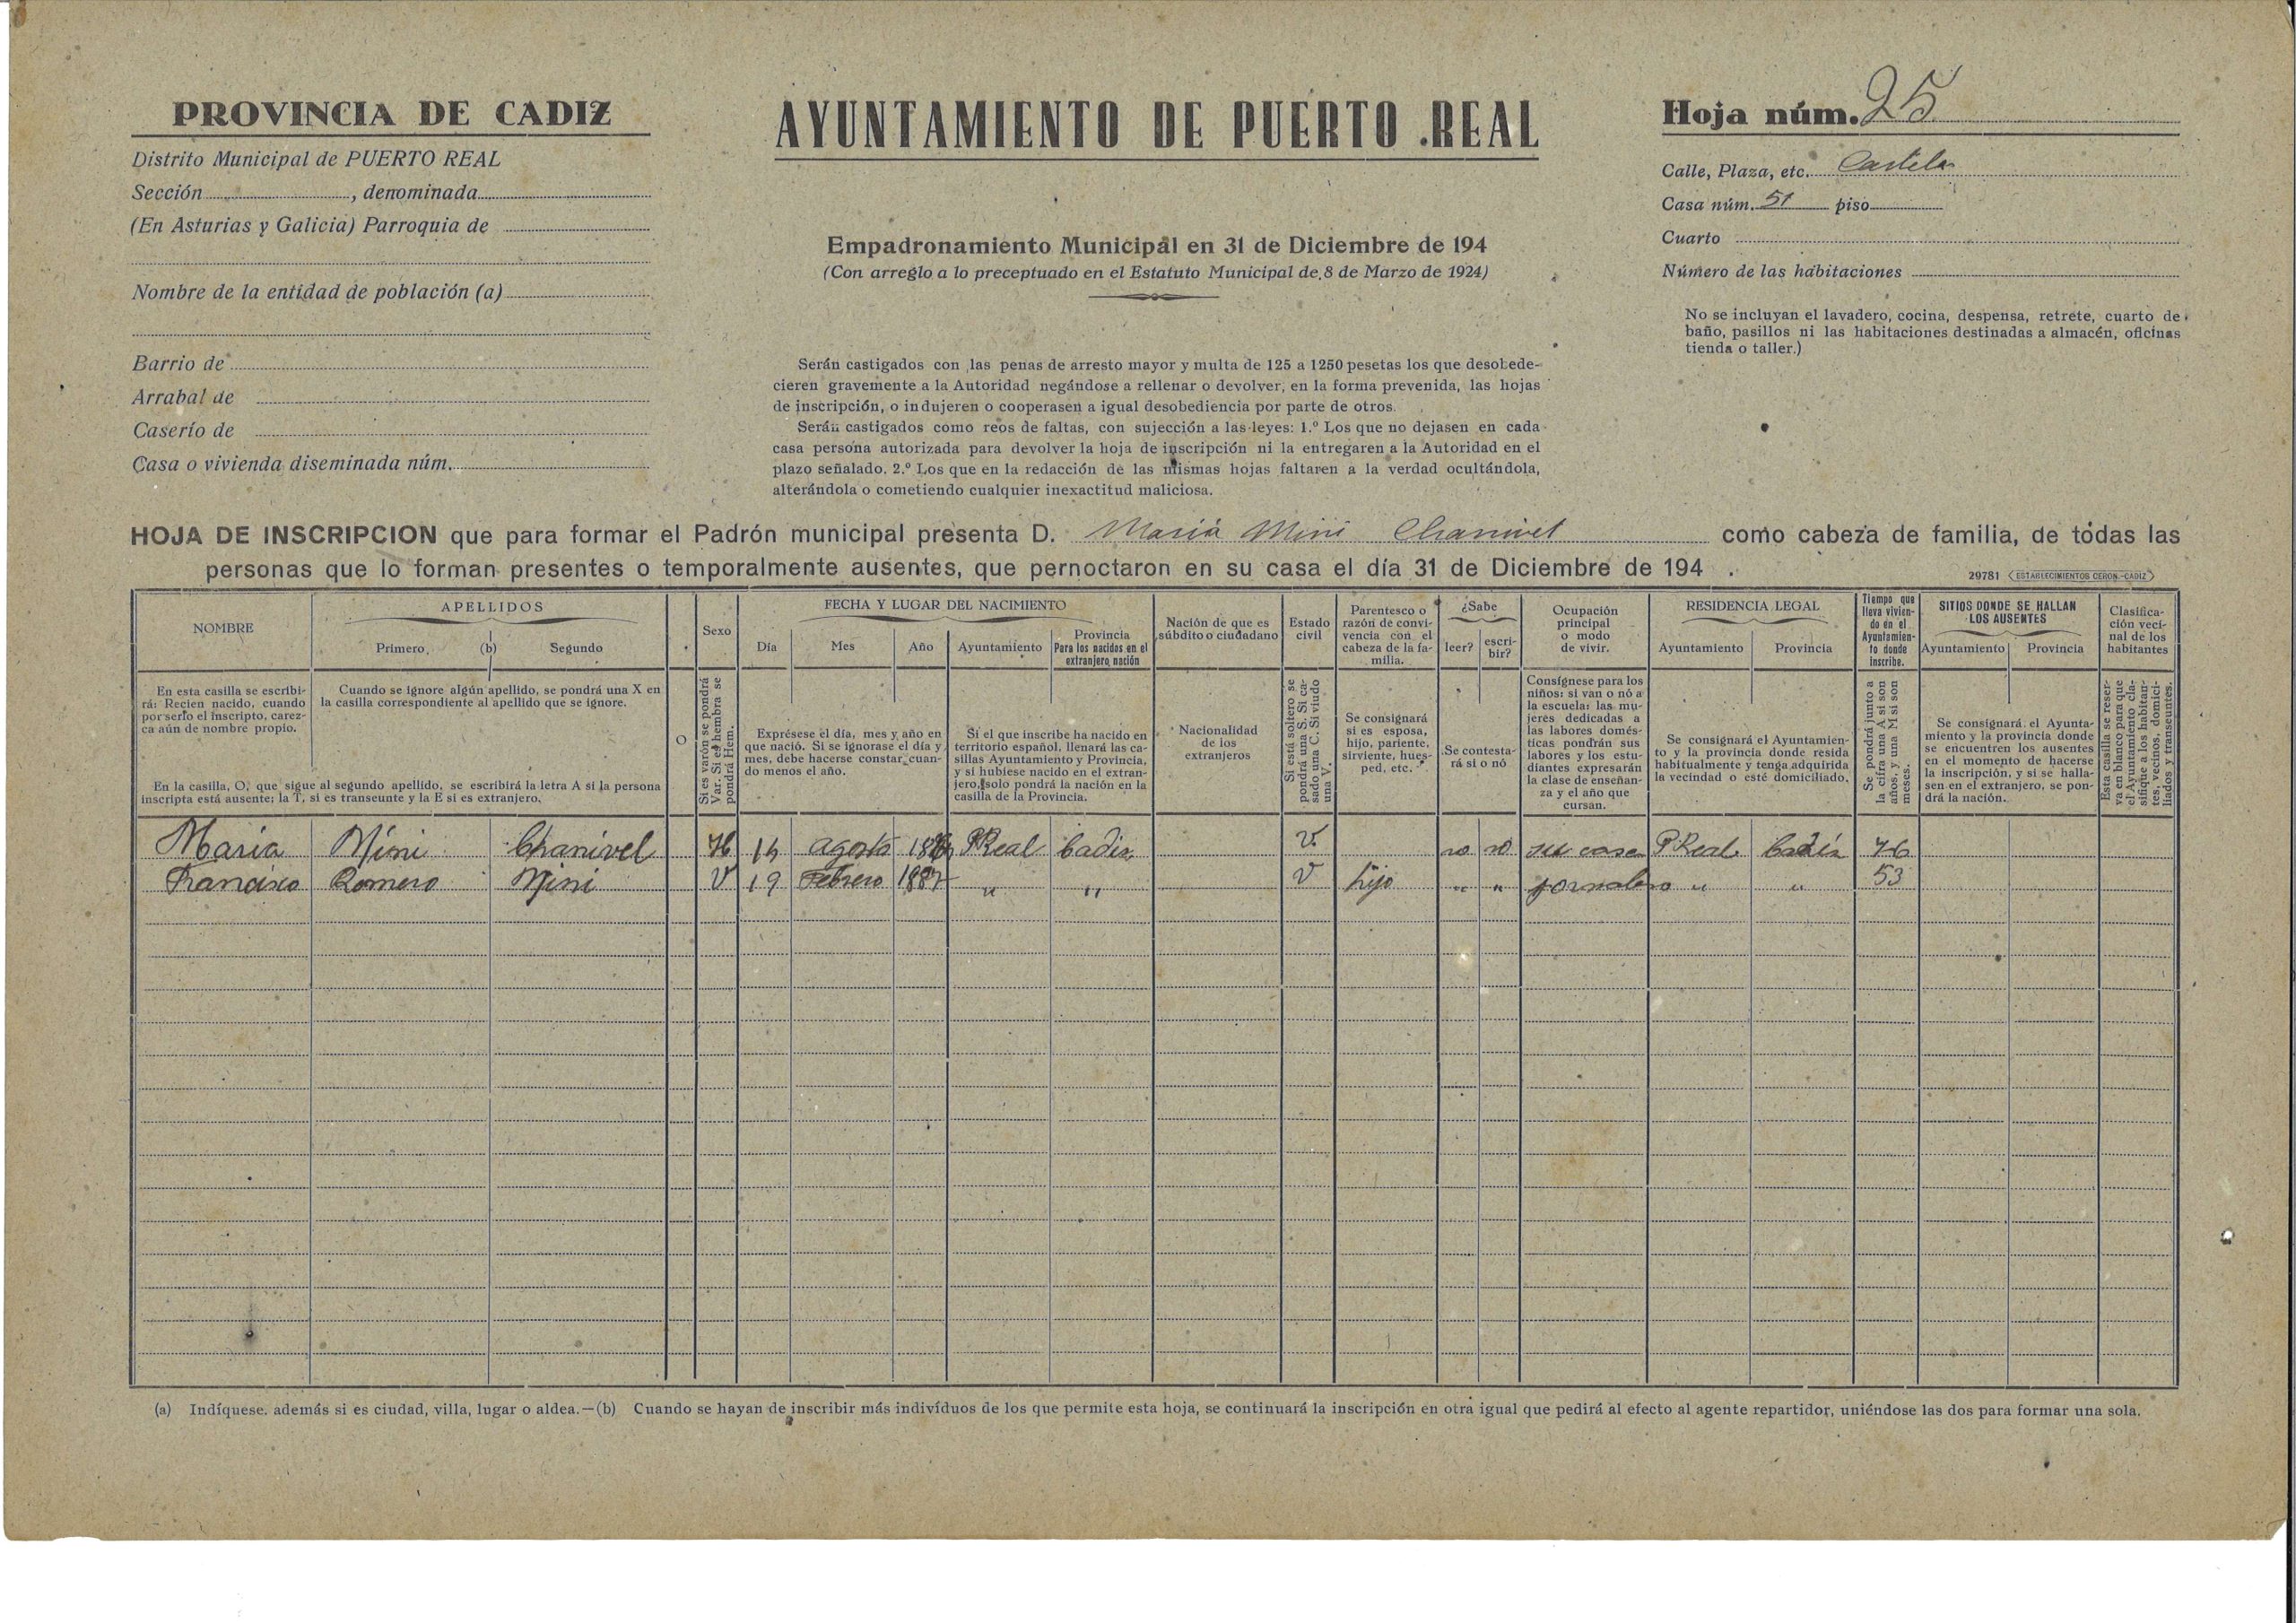 PROVINCIA DE CADIZ
Distrito Municipal de PUERTO REAL
Sección , denominada
(En Asturias y Galicia) Parroquia de
Nombre de la entidad de población (a)
Barrio de
Arrabal de
Caserío de
Casa o vivienda diseminada núm.
AYUNTAMIENTO DE PUERTO REAL
Empadronamiento Municipal en 31 de Diciembre de 194
(Con arreglo a lo preceptuado en el Estatuto Municipal de 8 de Marzo de 1924)
Serán castigados con las penas de arresto mayor y multa de 125 a 1250 pesetas los que desobede-
cieren gravemente a la Autoridad negándose a rellenar o devolver, en la forma prevenida, las hojas
de inscripción, o indujeren o cooperasen a igual desobediencia por parte de otros.
Serán castigados como reos de faltas, con sujección a las leyes: 1.º Los que no dejasen en cada
casa persona autorizada para devolver la hoja de inscripción ni la entregaren a la Autoridad en el
plazo señalado. 2.º Los que en la redacción de las mismas hojas faltaren a la verdad ocultándola,
alterándola o cometiendo cualquier inexactitud maliciosa.
Hoja núm. 25
Calle, Plaza, etc. Castelar
Casa núm. 51 piso
Cuarto
Número de las habitaciones
No se incluyan el lavadero, cocina, despensa, retrete, cuarto de
baño, pasillos ni las habitaciones destinadas a almacén, oficinas
tienda o taller.)
HOJA DE INSCRIPCION que para formar el Padrón municipal presenta D. Maria Mini Chanivel como cabeza de familia, de todas las
personas que lo forman presentes o temporalmente ausentes, que pernoctaron en su casa el día 31 de Diciembre de 194 .
29781 ESTABLECIMIENTOS CERON.-CADIZ
NOMBRE
APELLIDOS
Primero (b) Segundo
Sexo
FECHA Y LUGAR DEL NACIMIENTO
Día Mes Año Ayuntamiento
Provincia
Para los nacidos en el
extranjero nación
Nación de que es
súbdito o ciudadano
Estado
civil
Parentesco o
razón de convi-
vencia con el
cabeza de la fa-
milia.
¿Sabe
leer?
escri-
bir?
Ocupación
principal
o modo
de vivir.
RESIDENCIA LEGAL
Ayuntamiento Provincia
Tiempo que
lleva vivien-
do en el
Ayuntamien-
to donde
inscribe.
SITIOS DONDE SE HALLAN
LOS AUSENTES
Ayuntamiento Provincia
Clasifica-
ción veci-
nal de los
habitantes
En esta casilla se escribi-
rá: Recien nacido, cuando
por serlo el inscripto, carez-
ca aún de nombre propio.
Cuando se ignore algún apellido, se pondrá una X en
la casilla correspondiente al apellido que se ignore.
En la casilla, O, que sigue al segundo apellido, se escribirá la letra A si la persona
inscripta está ausente; la T, si es transeunte y la E si es extranjero.
O
Si es varón se pondrá
Var. Si es hembra se
pondrá Hem.
Exprésese el día, mes y año en
que nació. Si se ignorase el día y
mes, debe hacerse constar cuan-
do menos el año.
Si el que inscribe ha nacido en
territorio español, llenará las ca-
sillas Ayuntamiento y Provincia,
y si hubiese nacido en el extran-
jero, solo pondrá la nación en la
casilla de la Provincia.
Nacionalidad
de los
extranjeros
Si está soltero se
pondrá una S. Si ca-
sado una C. Si viudo
una V.
Se consignará
si es esposa,
hijo, pariente,
sirviente, hues-
ped, etc.
Se contesta-
rá si o nó
Consígnese para los
niños: si van o nó a
la escuela: las mu-
jeres dedicadas a
las labores domés-
ticas pondrán sus
labores y los estu-
diantes expresarán
la clase de enseñan-
za y el año que
cursan.
Se consignará el Ayuntamien-
to y la provincia donde resida
habitualmente y tenga adquirida
la vecindad o esté domiciliado.
Se pondrá junto a
la cifra una A si son
años, y una M si son
meses.
Se consignará el Ayunta-
miento y la provincia donde
se encuentren los ausentes
en el momento de hacerse
la inscripción, y si se halla-
sen en el extranjero, se pon-
drá la nación.
Esta casilla se reser-
va en blanco para que
el Ayuntamiento cla-
sifique a los habitan-
tes, vecinos, domici-
liados y transeuntes.
Maria Mini Chanivel H 14 agosto PReal Cadiz V. no no su casa PReal Cadiz 76
Francisco Romero Mini V 19 Febrero 1887 " " V hijo " " jornalero " " 53
(a) Indíquese. además si es ciudad, villa, lugar o aldea.—(b) Cuando se hayan de inscribir más individuos de los que permite esta hoja, se continuará la inscripción en otra igual que pedirá al efecto al agente repartidor, uniéndose las dos para formar una sola.